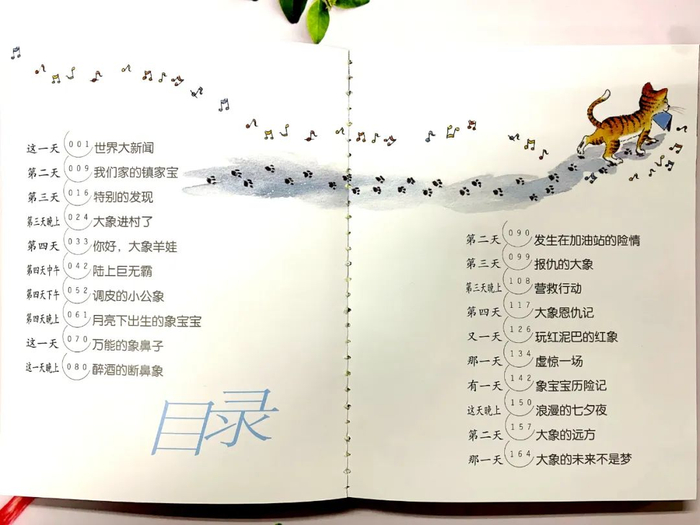 这一天 001 世界大新闻
第二天 009 我们家的镇家宝
第三天 016 特别的发现
第三天晚上 024 大象进村了
第四天 033 你好，大象羊娃
第四天中午 042 陆上巨无霸
第四天下午 052 调皮的小公象
第四天晚上 061 月亮下出生的象宝宝
这一天 070 万能的象鼻子
这一天晚上 080 醉酒的断鼻象
目录
第二天 090 发生在加油站的险情
第三天 099 报仇的大象
第三天晚上 108 营救行动
第四天 117 大象恩仇记
又一天 126 玩红泥巴的红象
那一天 134 虚惊一场
有一天 142 象宝宝历险记
这天晚上 150 浪漫的七夕夜
第二天 157 大象的远方
那一天 164 大象的未来不是梦